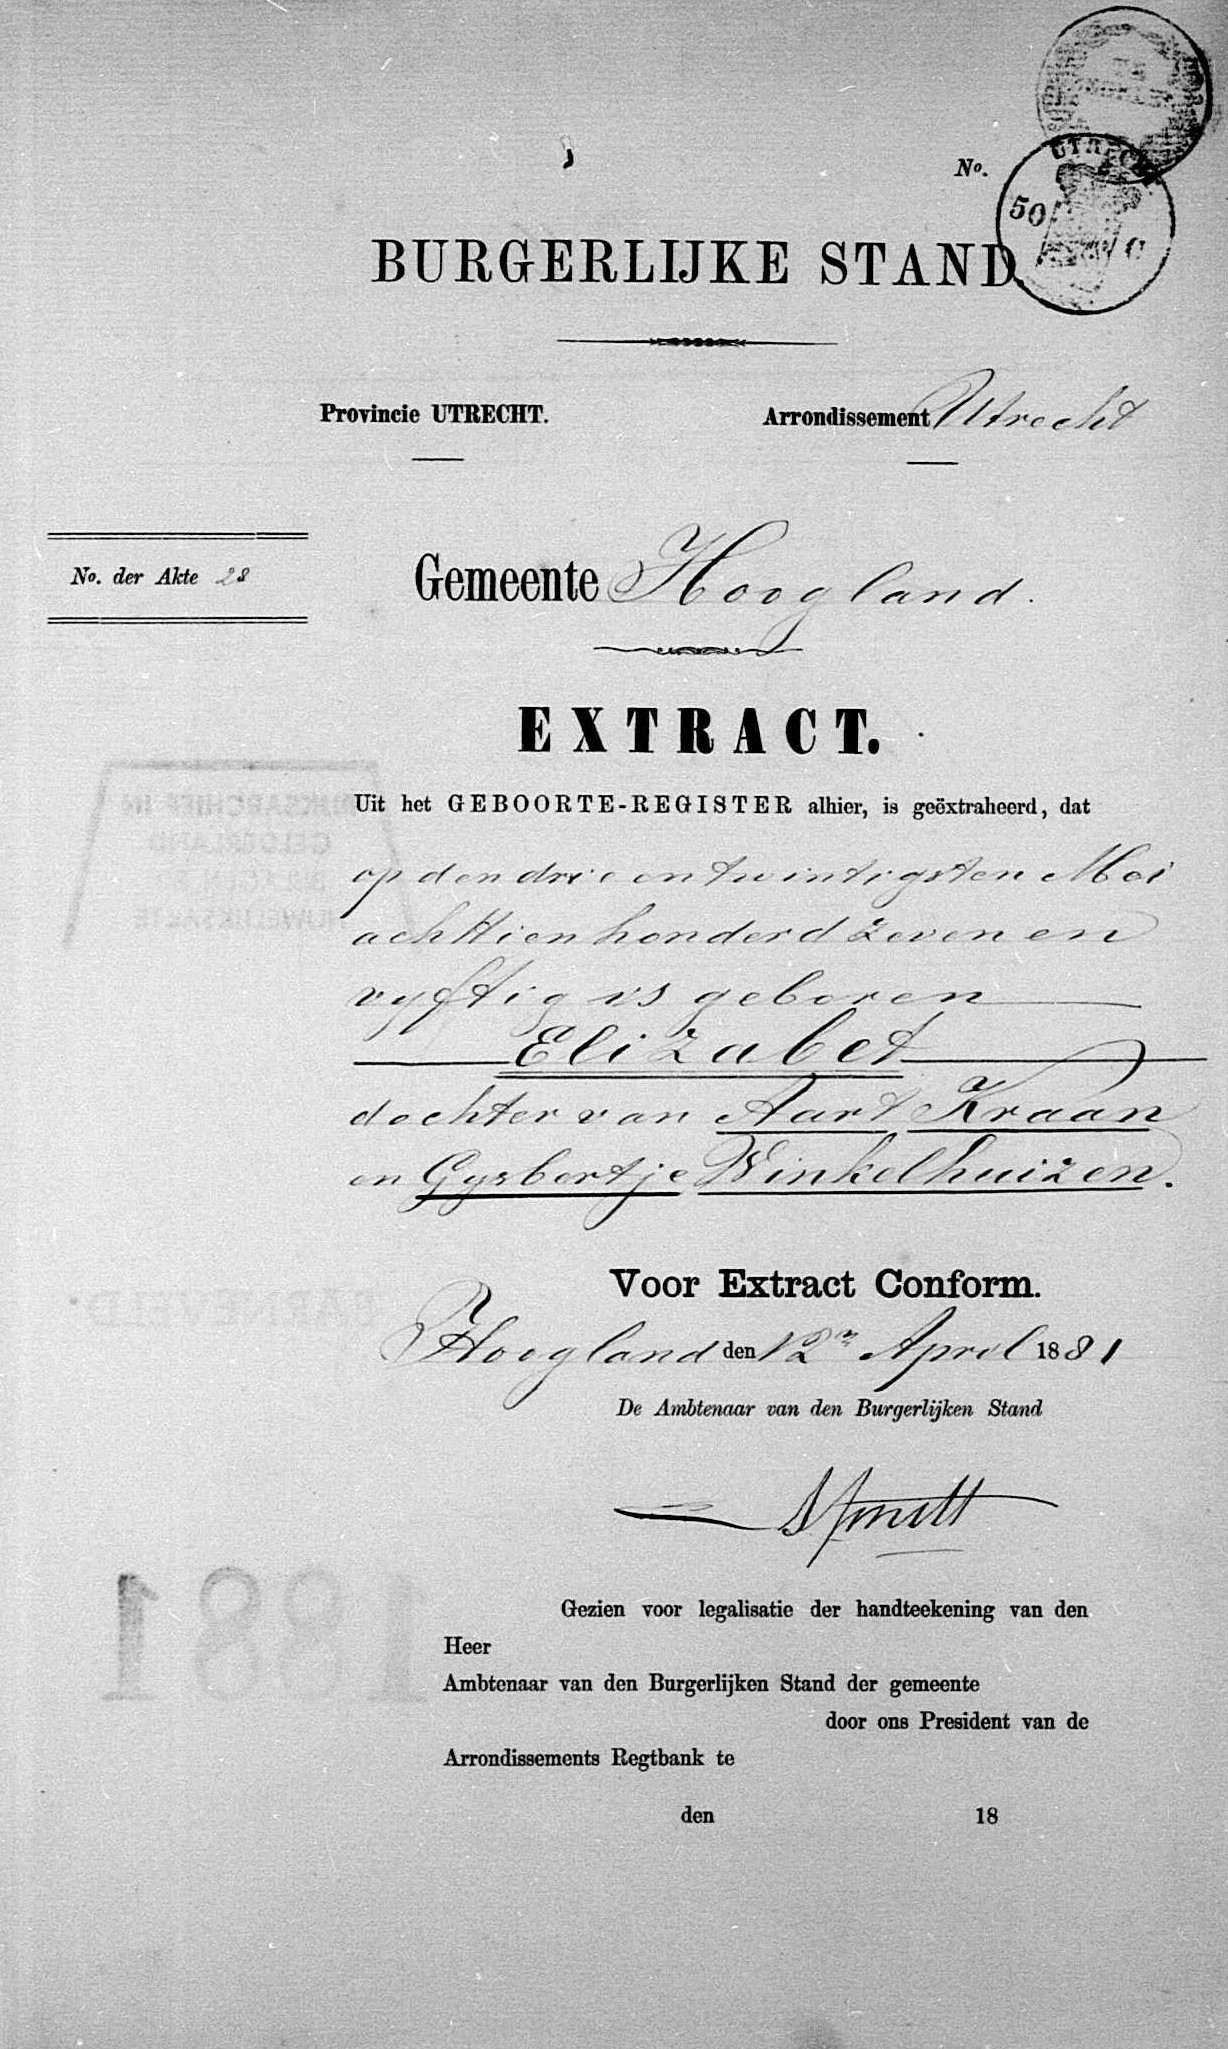 UTRECHT
50 C
No.
BURGERLIJKE STAND
Provincie UTRECHT.
Arrondissement Utrecht
No. der Akte 28
Gemeente Hoogland.
EXTRACT.
Uit het GEBOORTE-REGISTER alhier, is geëxtraheerd, dat
op den drie en twintigsten Mei
achttien honderd zeven en
vyftig is geboren
Elizabet
dochter van Aart Kraan
en Gysbertje Winkelhuizen.
Voor Extract Conform.
Hoogland den 12n April 1881
De Ambtenaar van den Burgerlijken Stand
Gezien voor legalisatie der handteekening van den
Heer
Ambtenaar van den Burgerlijken Stand der gemeente
door ons President van de
Arrondissements Regtbank te
den 18
RIJKSARCHIEF IN
GELDERLAND
BIJLAGEN
HUWELIJKSAKTE
BARNEVELD
1881